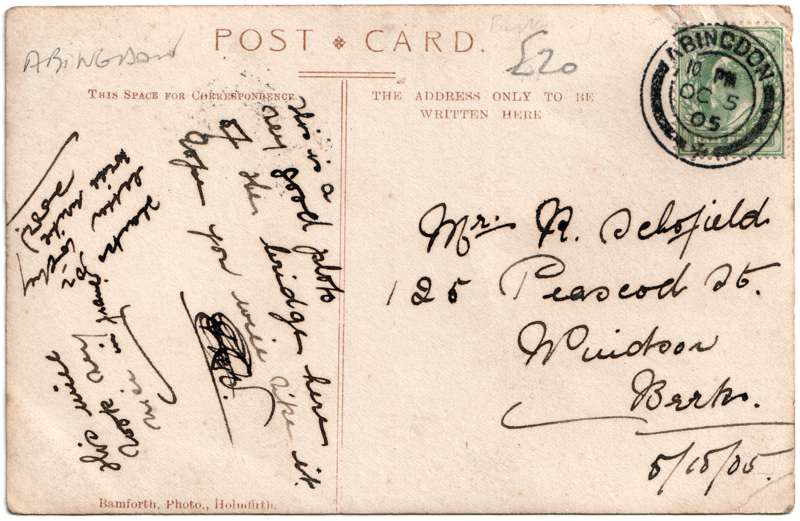 ABINGDON
POST CARD.
£20
THIS SPACE FOR CORRESPONDENCE
THE ADDRESS ONLY TO BE
WRITTEN HERE
ABINGDON
10 PM
OC 5
05
This is a
very good photo
of the bridge here
hope you will like it
This will
look very
nice in
Thanks
letter
will write
soon
Mr. R. Schofield
125 Peascod St.
Windsor
Berks.
5/10/05.
Bamforth, Photo., Holmfirth.